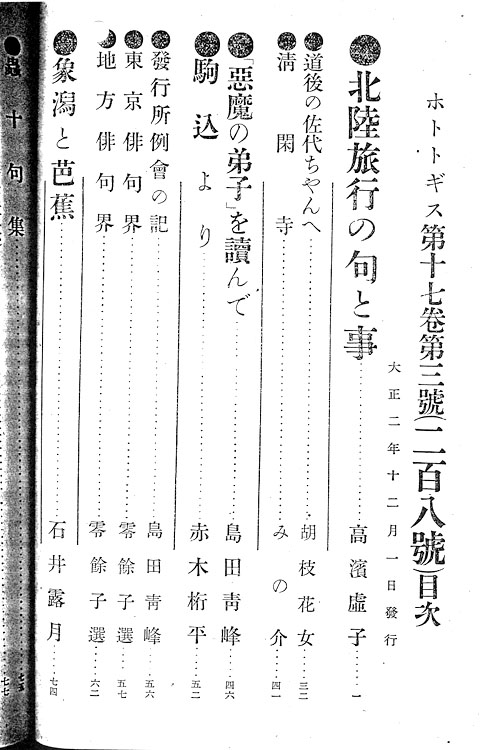 ホトトギス第十七卷第三號(二百八號)目次
大正二年十二月一日發行
●北陸旅行の句と事……高濱虛子……一
●道後の佐代ちやんへ……胡枝花女……三二
●淸閑寺……みの介……四一
●「惡魔の弟子」を讀んで……島田靑峰……四六
●駒込より……赤木桁平……五二
●發行所例會の記……島田靑峰……五六
●東京俳句界……零餘子選……五七
●地方俳句界……零餘子選……六二
●象潟と芭蕉……石井露月……七四
十句集……七七